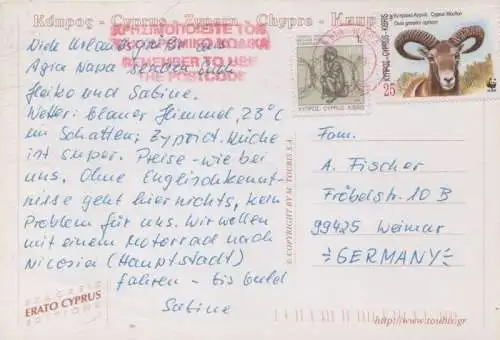 Κύπρος - Cyprus - Zypern - Chypre - Кипр
ΧΡΗΣΙΜΟΠΟΙΕΙΤΕ ΤΟΝ
ΤΑΧΥΔΡΟΜΙΚΟ ΚΩΔΙΚΑ
REMEMBER TO USE
THE POSTCODE
Κυπριακό Αγρινό Cyprus Mouflon
Ovis gmelini ophion
ΚΥΠΡΟΣ-CYPRUS-KIBRIS
25
WWF
1c
ΚΥΠΡΟΣ CYPRUS KIBRIS
Viele Urlaubsgrüße aus
Agia Napa senden Euch
Heiko und Sabine.
Wetter: blauer Himmel, 23°C
im Schatten; Zypriot. Küche
ist super. Preise - wie bei
uns. Ohne Englischkennt-
nisse geht hier nichts, kein
Problem für uns. Wir wollen
mit einem Motorrad nach
Nicosia (Hauptstadt)
fahren - bis bald
Sabine
Fam.
A. Fischer
Fröbelstr. 10 B
99425 Weimar
GERMANY
© COPYRIGHT BY M. TOUBIS S.A.
ΕΚΔΟΣΕΙΣ
ERATO CYPRUS
EDITIONS
http://www.toubis.gr